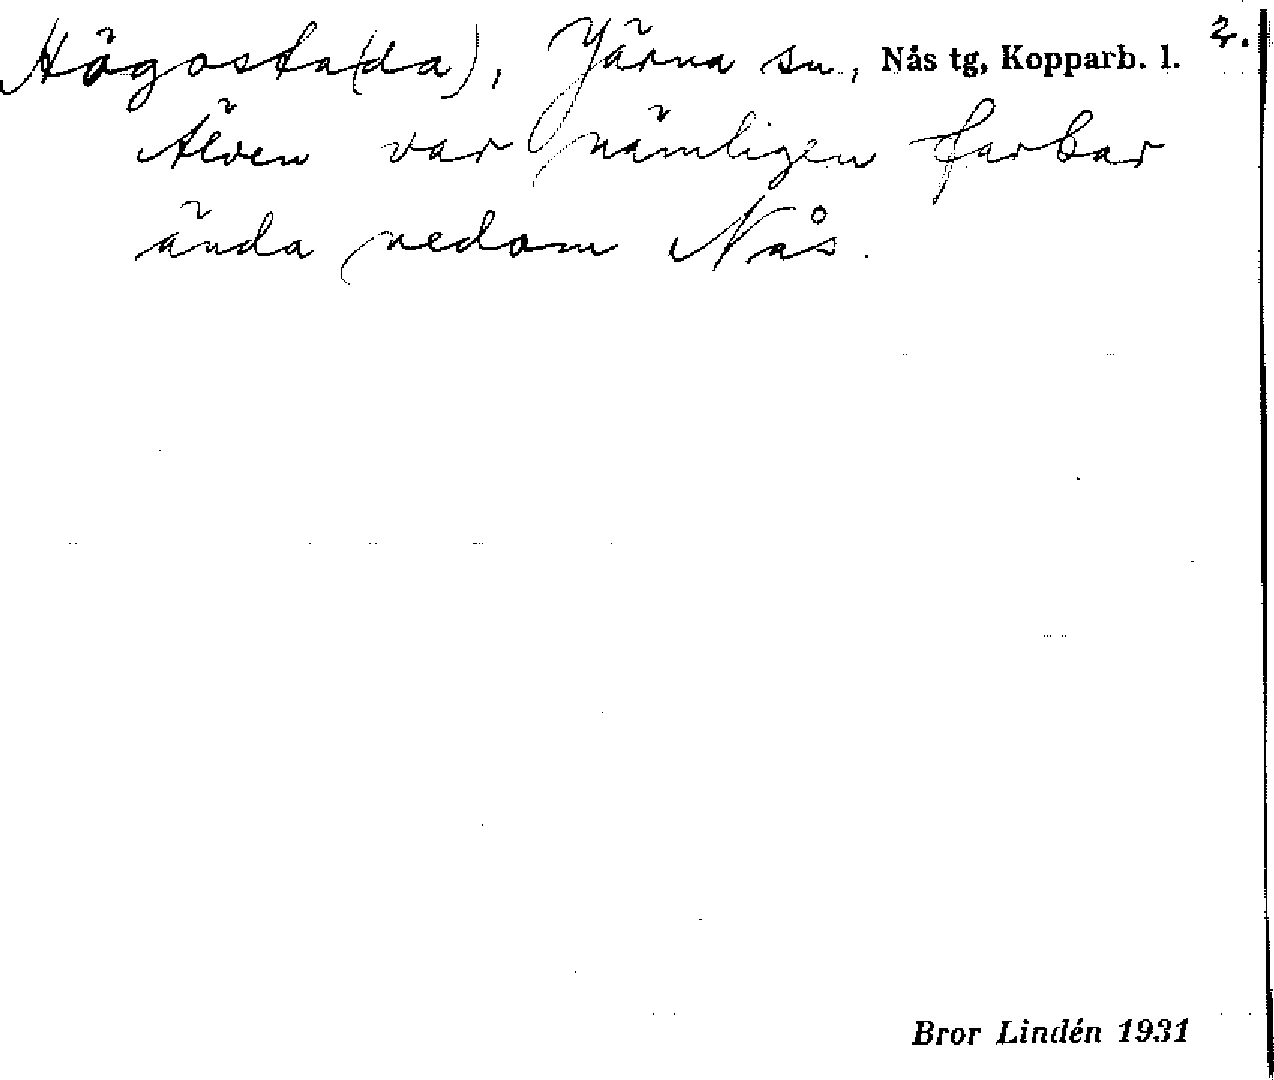 Högosta(da), Järna sn, Nås tg, Kopparb. l. 2.
Älven var nämligen farbar
ända nedom Nås.
Bror Lindén 1931